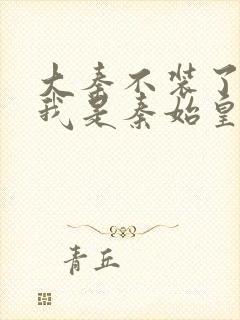 大秦不装了
我是秦始皇
青丘